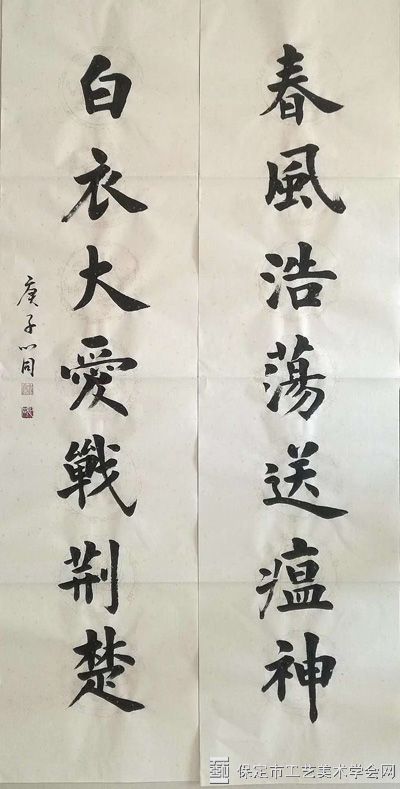 春風浩蕩送瘟神
白衣大愛戰荆楚
庚子小同
保定市工艺美术学会网